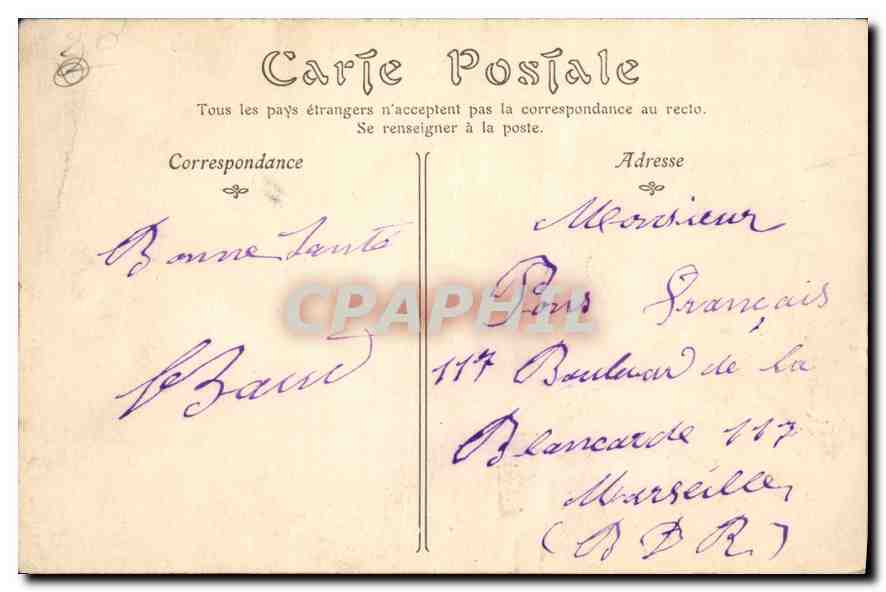 Carte Postale
Tous les pays étrangers n'acceptent pas la correspondance au recto.
Se renseigner à la poste.
Correspondance
Bonne Santé
Adresse
Monsieur
Pons Français
117 Boulevar de la
Blancarde 117
Marseille
(B D R)
CPAPHIL